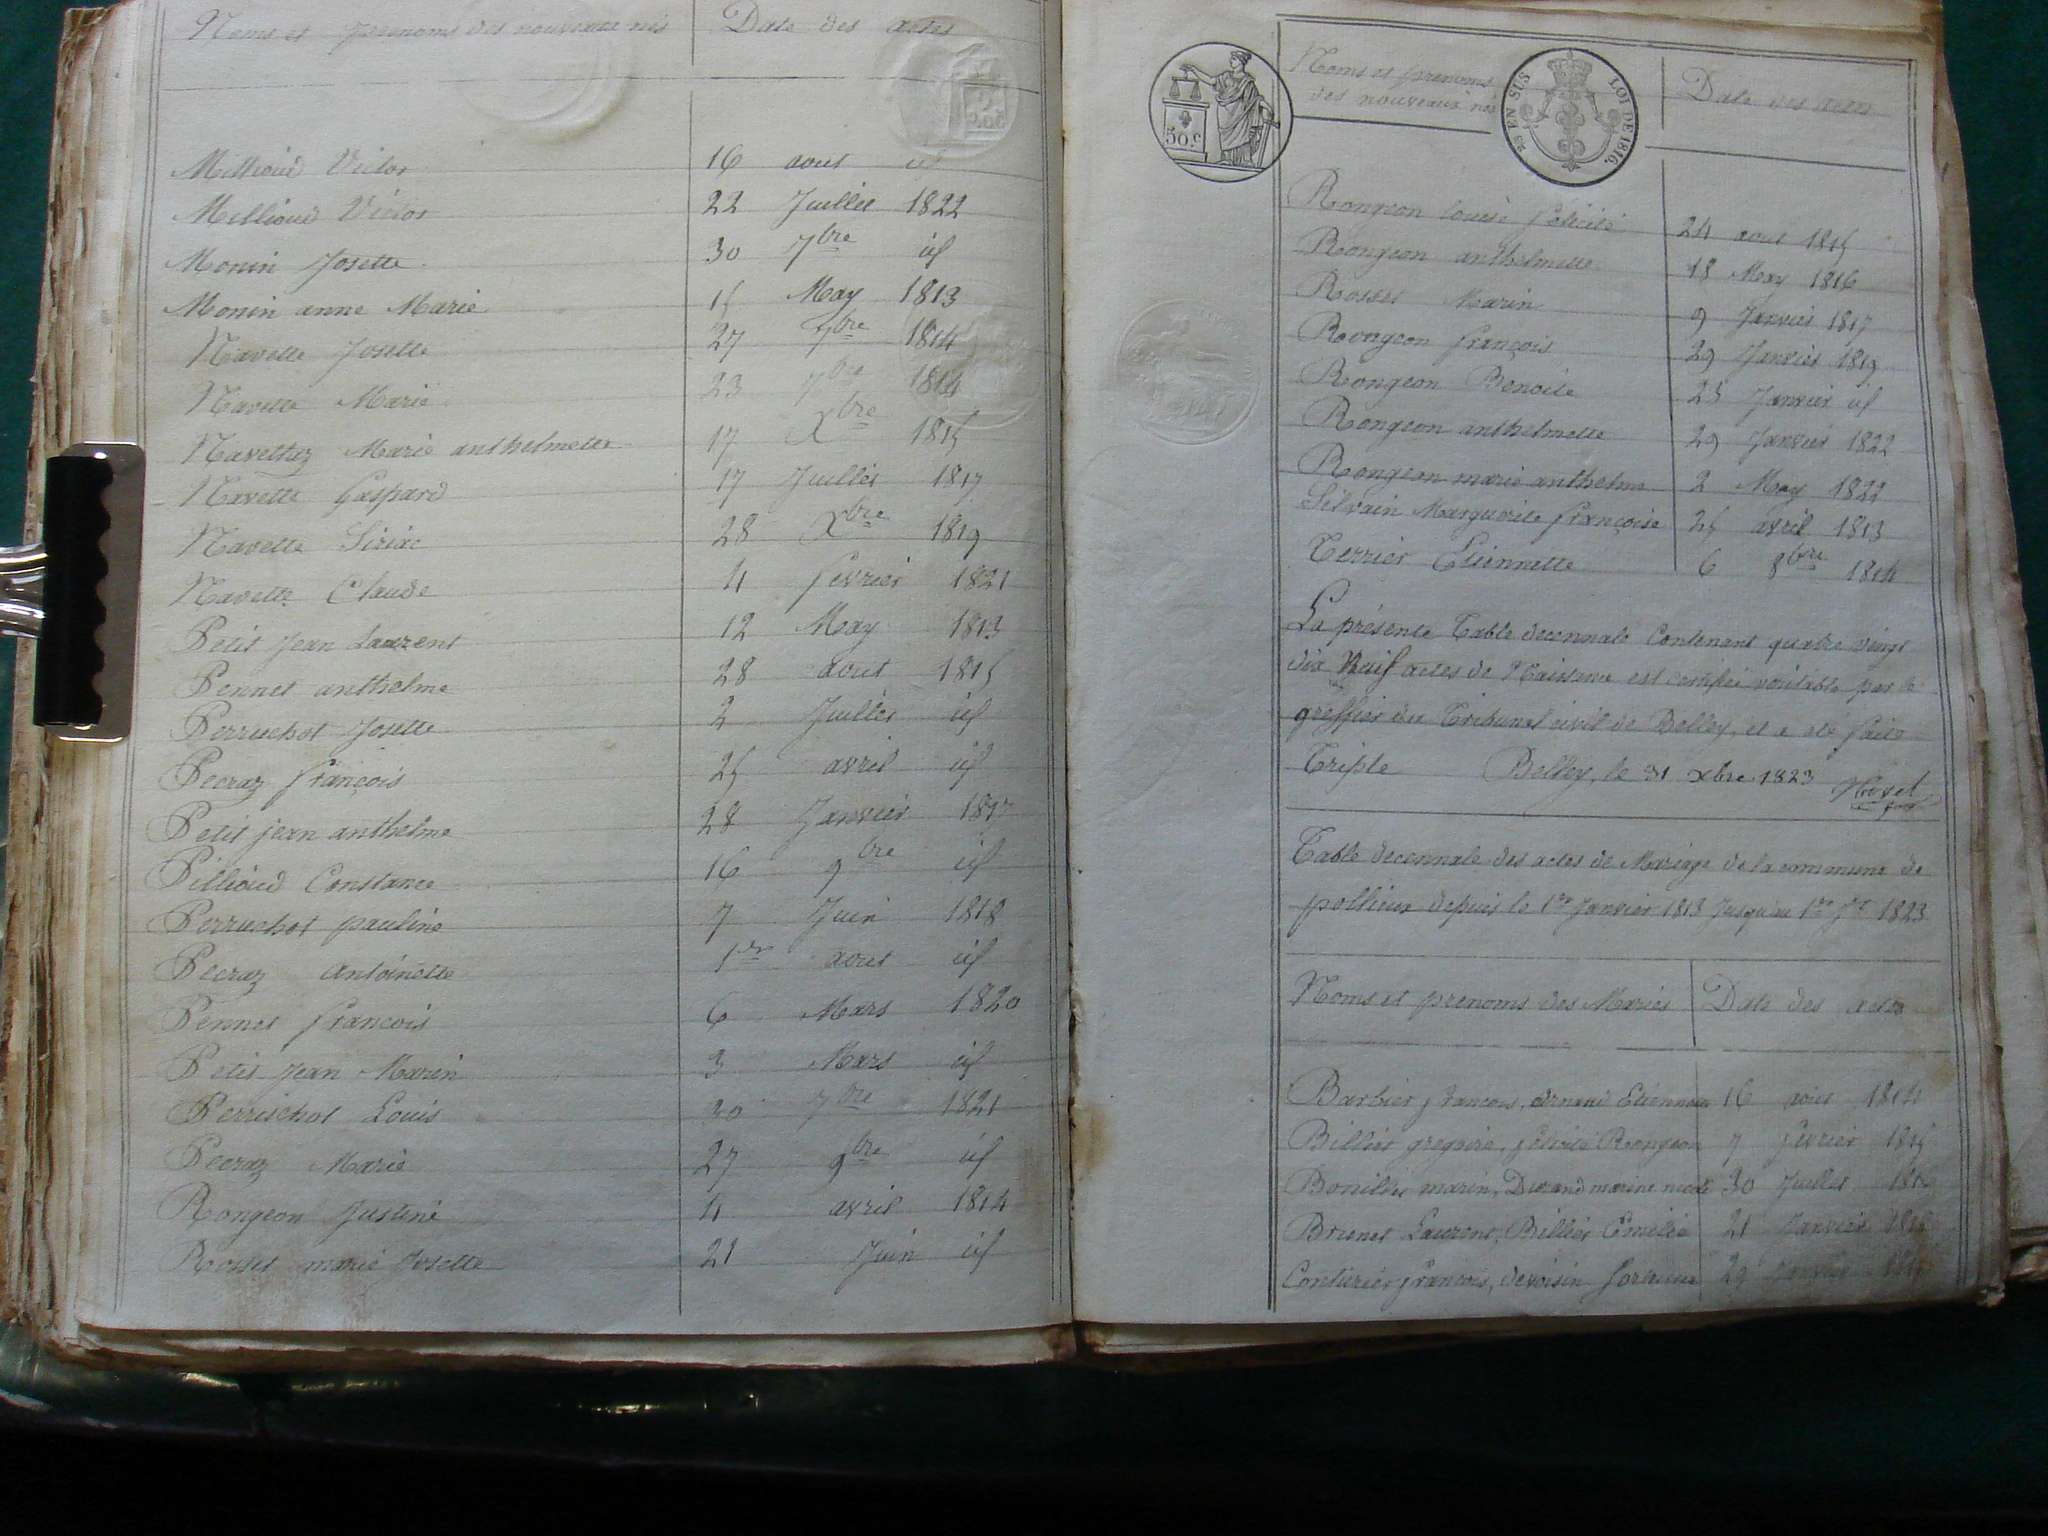 Noms et prenoms des nouveaux nés Date des actes
Millioud Victor 16 aout id
Millioud Victor 22 Juillet 1822
Monin Josette 30 7bre id
Monin anne Marie 15 May 1813
Navette Josette 27 7bre 1814
Navette Marie 23 7bre 1814
Navettez Marie anthelmette 17 Xbre 1815
Navette Gaspard 17 Juillet 1817
Navette Siriac 28 Xbre 1819
Navette Claude 4 fevrier 1821
Petit Jean Laurent 12 May 1813
Pennet anthelme 28 aout 1815
Perruchot Josette 2 Juillet id
Pecraz françois 25 avril id
Petit jean anthelme 28 Janvier 1817
Pillioud Constance 16 9bre id
Perruchot pauline 7 Juin 1818
Pecraz Antoinette 1er aout id
Pennet francois 6 Mars 1820
Petit Jean Marin 3 Mars id
Perrichot Louis 30 7bre 1821
Pecraz Marie 27 9bre id
Rongeon Justine 4 avril 1814
Rosset marie Josette 21 Juin id
50.c
Noms et prenoms
des nouveaux nés
EN SUS LOI DE 1816.
Date des actes
Rongeon louise félicité 24 aout 1815
Rongeon anthelmette 18 May 1816
Rosset Marin 9 Janvier 1817
Rovngeon françois 29 Janvier 1819
Rongeon Benoite 25 Janvier id
Rongeon anthelmette 29 Janvier 1822
Rongeon marie anthelme 2 May 1822
Silvain Marguerite françoise 25 avril 1813
Terrier Etiennette 6 8bre 1814
La présente Table decennale Contenant quatre vingt
dix Neuf actes de Naissance est certifiée véritable par le
greffier du Tribunal civil de Belley, et a eté faite
Triple Belley, le 31 xbre 1823
Table decennale des actes de Mariage de la commune de
pollieux depuis le 1er Janvier 1813 Jusqu'au 1er Jer 1823
Noms et prenoms des Mariés Date des actes
Barbier francois, Etiennette 16 aout 1814
Billiet gregoire, felicité Rongeon 7 fevrier 1815
Bonillet marin, Durand marine 30 Juillet
Brunet Laurent, Billiet Emilie 21 Janvier
Conturier francois, devoisin 29 Janvier